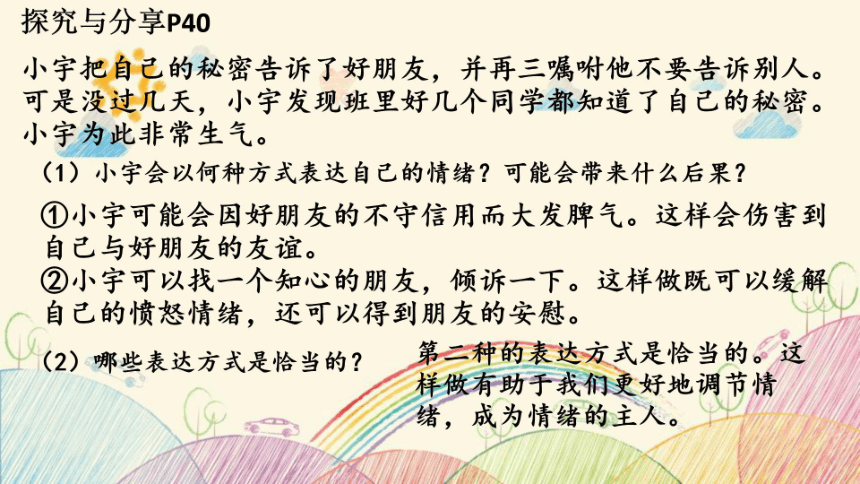 探究与分享P40
小宇把自己的秘密告诉了好朋友，并再三嘱咐他不要告诉别人。
可是没过几天，小宇发现班里好几个同学都知道了自己的秘密。
小宇为此非常生气。
（1）小宇会以何种方式表达自己的情绪？可能会带来什么后果？
①小宇可能会因好朋友的不守信用而大发脾气。这样会伤害到
自己与好朋友的友谊。
②小宇可以找一个知心的朋友，倾诉一下。这样做既可以缓解
自己的愤怒情绪，还可以得到朋友的安慰。
（2）哪些表达方式是恰当的？
第二种的表达方式是恰当的。这
样做有助于我们更好地调节情
绪，成为情绪的主人。